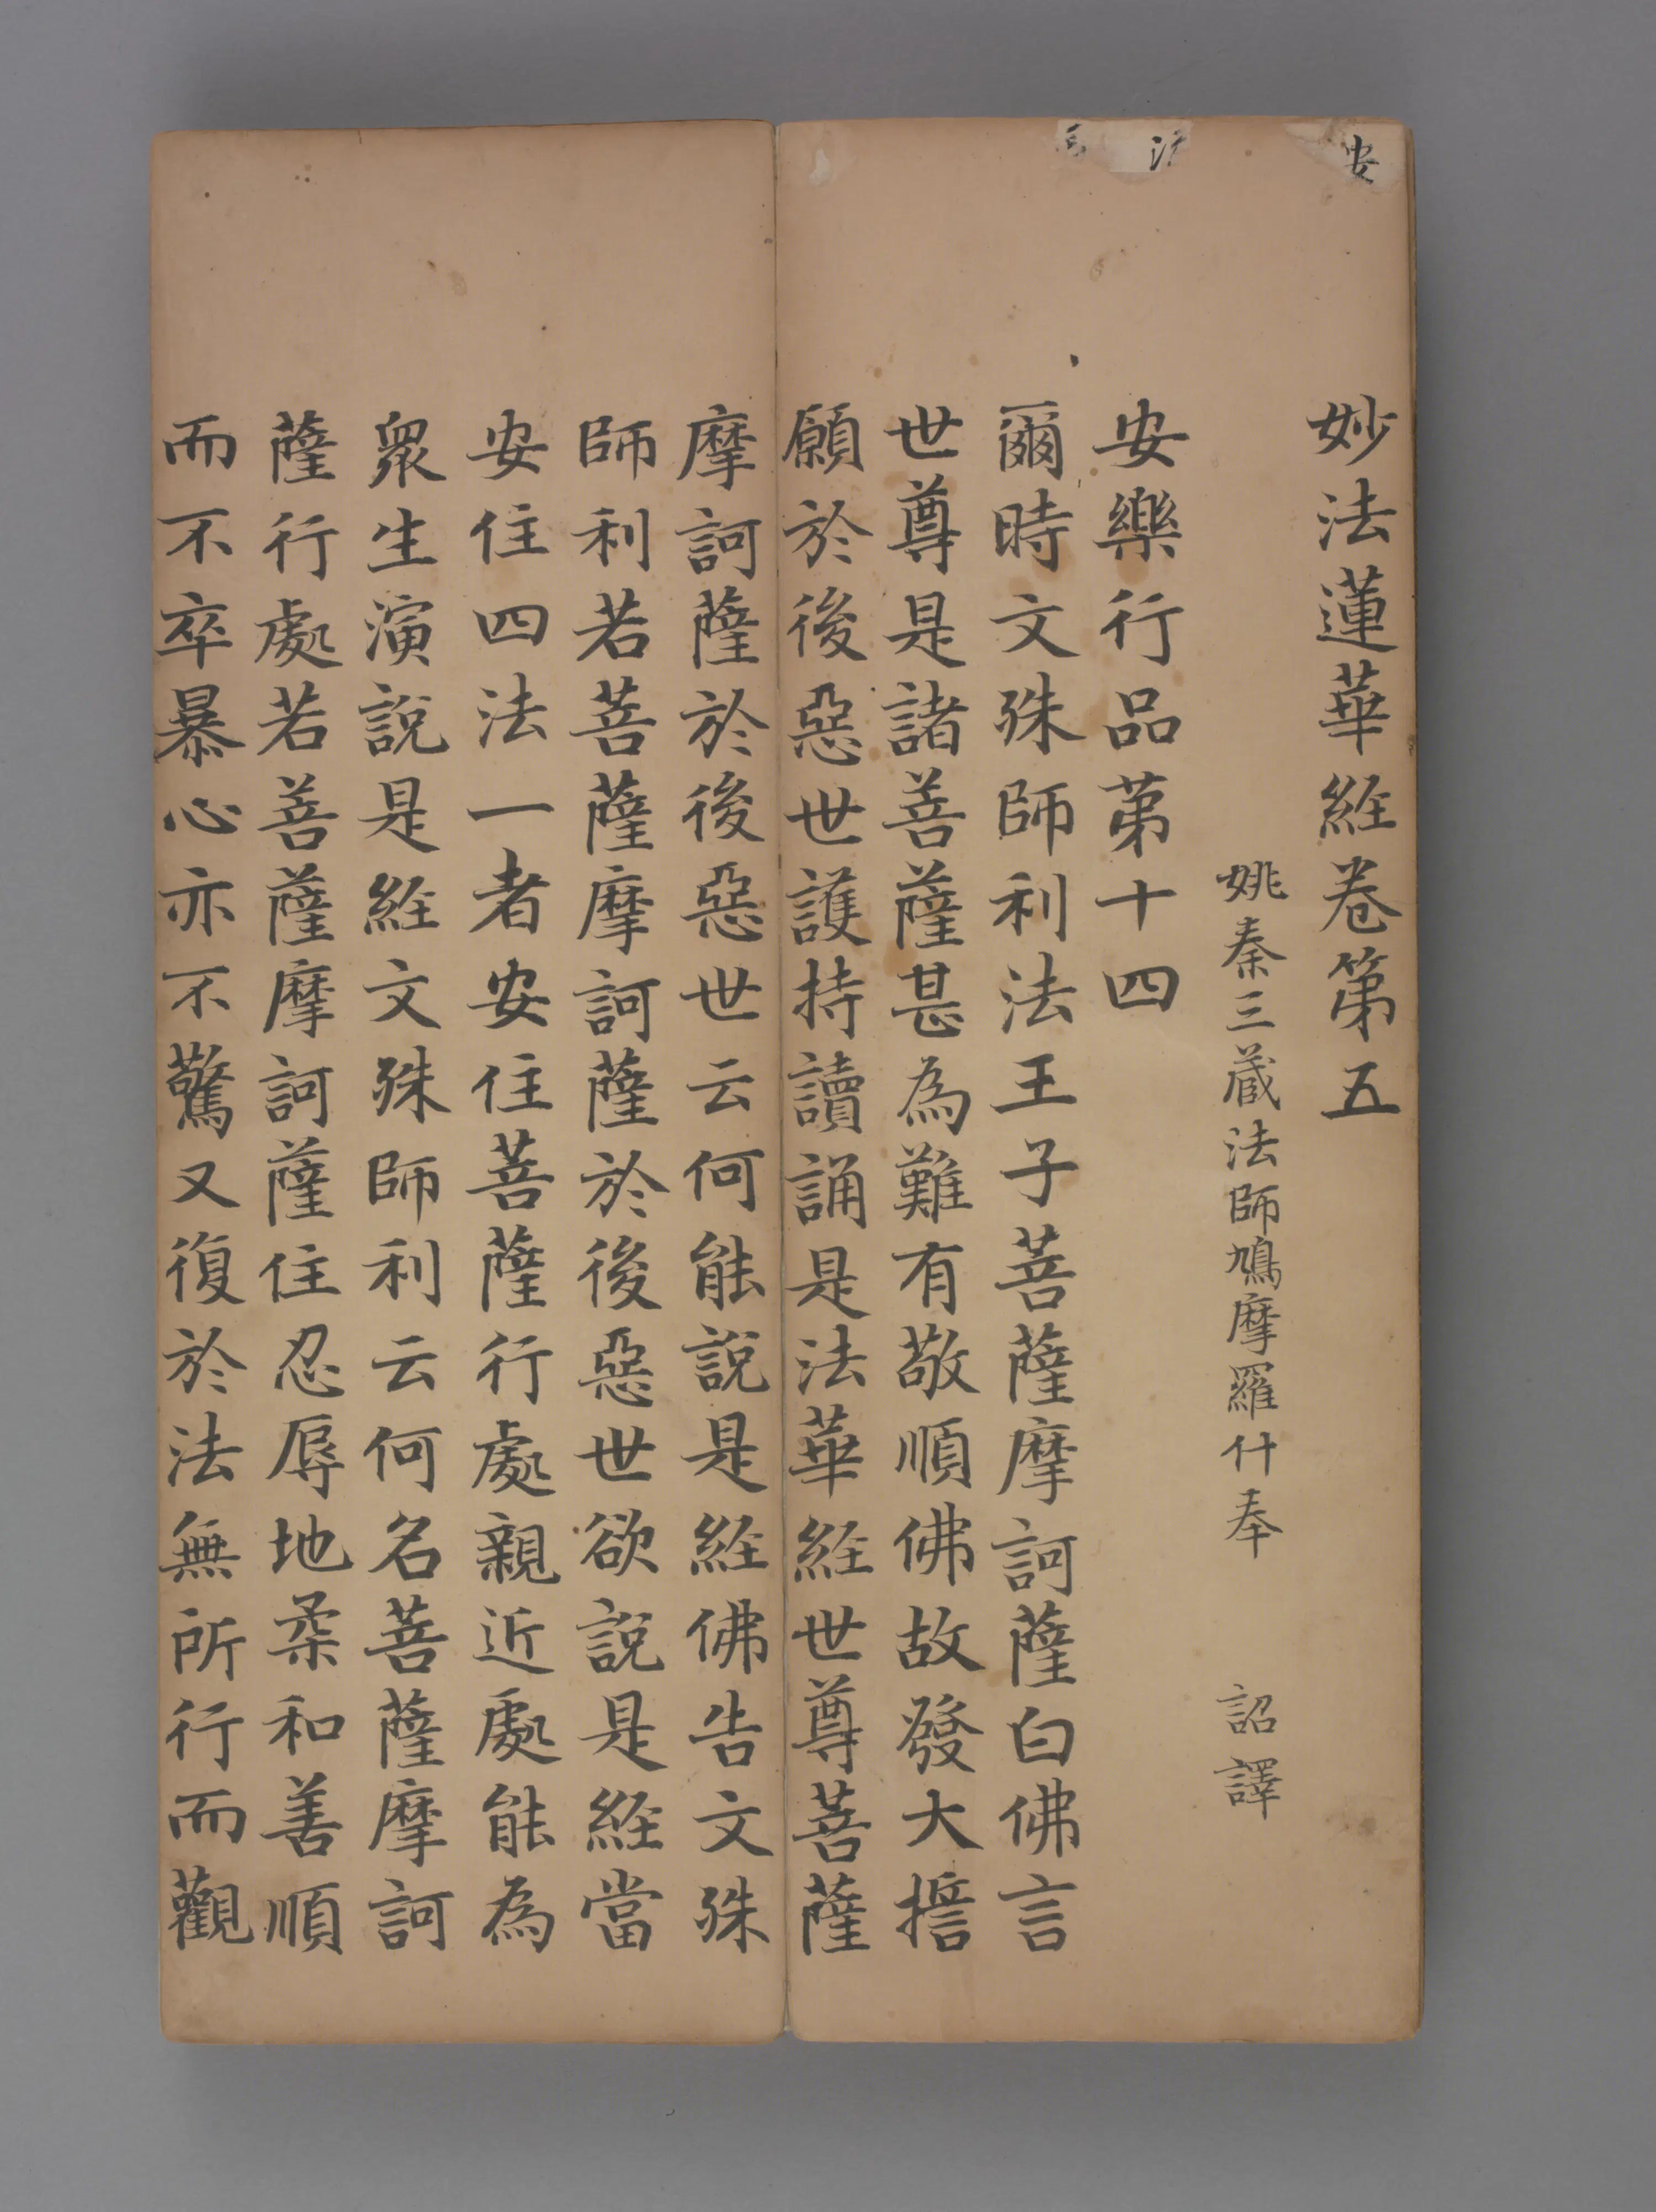 妙法蓮華経卷第五
姚秦三蔵法師鳩摩羅什奉 詔譯
安樂行品苐十四
爾時文殊師利法王子菩薩摩訶薩白佛言
世尊是諸菩薩甚為難有敬順佛故發大擔
願於後惡世護持讀誦是法華経世尊菩薩
摩訶薩於後惡世云何能說是経佛告文殊
師利若菩薩摩訶薩於後惡世欲說是経當
安住四法一者安住菩薩行處親近處能為
衆生演說是経文殊師利云何名菩薩摩訶
薩行處若菩薩摩訶薩住忍辱地柔和善順
而不卒暴心亦不驚又復於法無所行而觀
安